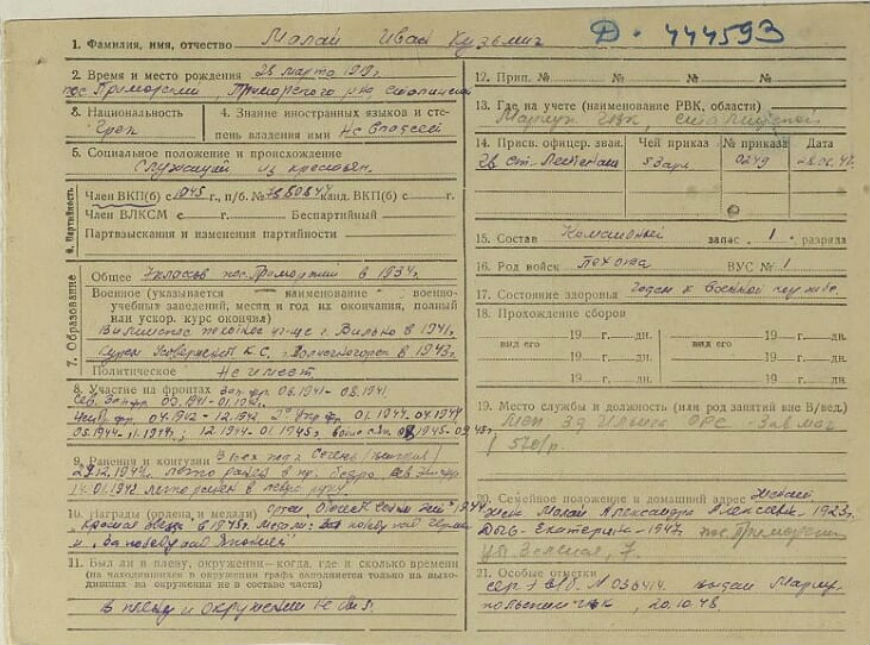 1. Фамилия, имя, отчество Малай Иван Кузьмич
Д. 444593
2. Время и место рождения 28 марта 1919г.
пос. Приморский, Приморского р-на, Сталинской
3. Национальность
Грек
4. Знание иностранных языков и сте-
пень владения ими Не владеет
5. Социальное положение и происхождение
Служащий из крестьян.
6. Партийность
Член ВКП(б) с 1945 г., п/б. № канд. ВКП(б) с г.
Член ВЛКСМ с г. Беспартийный
Партвзыскания и изменения партийности
7. Образование
Общее 7 классов пос. Приморский в 1934г.
Военное (указывается наименование военно-
учебных заведений, месяц и год их окончания, полный
или ускор. курс окончил)
пехотное уч-ще г. Вильно в 1941г.
К.С. г. Солнечногорск в 1943г.
Политическое Не имеет
8. Участие на фронтах Зап. фр. 06.1941 - 08.1941
Сев. Зап. фр. 09.1941-01.1942
04.1942 - 12.1942 2й Укр. фр. 01.1944-04.1944
05.1944- 12.1944-01.1945г. 1945-09.45г.
9. Ранения и контузии
29.12.1944г. легко ранен в пр. бедро
14.01.1942 легко ранен в левую руку
10. Награды (ордена и медали) орден 1944
"Красная звезда" в 1945г. медали: За победу над Герман
и "За победу над Японией"
11. Был ли в плену, окружении—когда, где и сколько времени
(на находившихся в окружении графа заполняется только на выхо-
дивших из окружения не в составе части)
В плену и окружении не был.
12. Прип. № № № №
13. Где на учете (наименование РВК, области)
Мариуп. ГВК, Сталинской
14. Присв. офицер. зван. Чей приказ № приказа Дата
Гв. ст. лейтенант 5 0249
15. Состав Командный запас 1 разряда
16. Род войск Пехота ВУС № 1
17. Состояние здоровья Годен к военной службе.
18. Прохождение сборов
19 г. дн. 19 г. дн.
вид его вид его
19 г. дн. 19 г. дн.
19 г. дн. 19 г. дн.
19. Место службы и должность (или род занятий вне В/вед.)
Ильича ОРС Зав. маг
20. Семейное положение и домашний адрес Женат
жена Малай Александра Алексеев.-1923г.
Дочь-Екатерина-1947 пос. Приморский
ул. Зеленая, 7.
21. Особые отметки
выдан Мариу-
польским ГВК, 20.10.48.